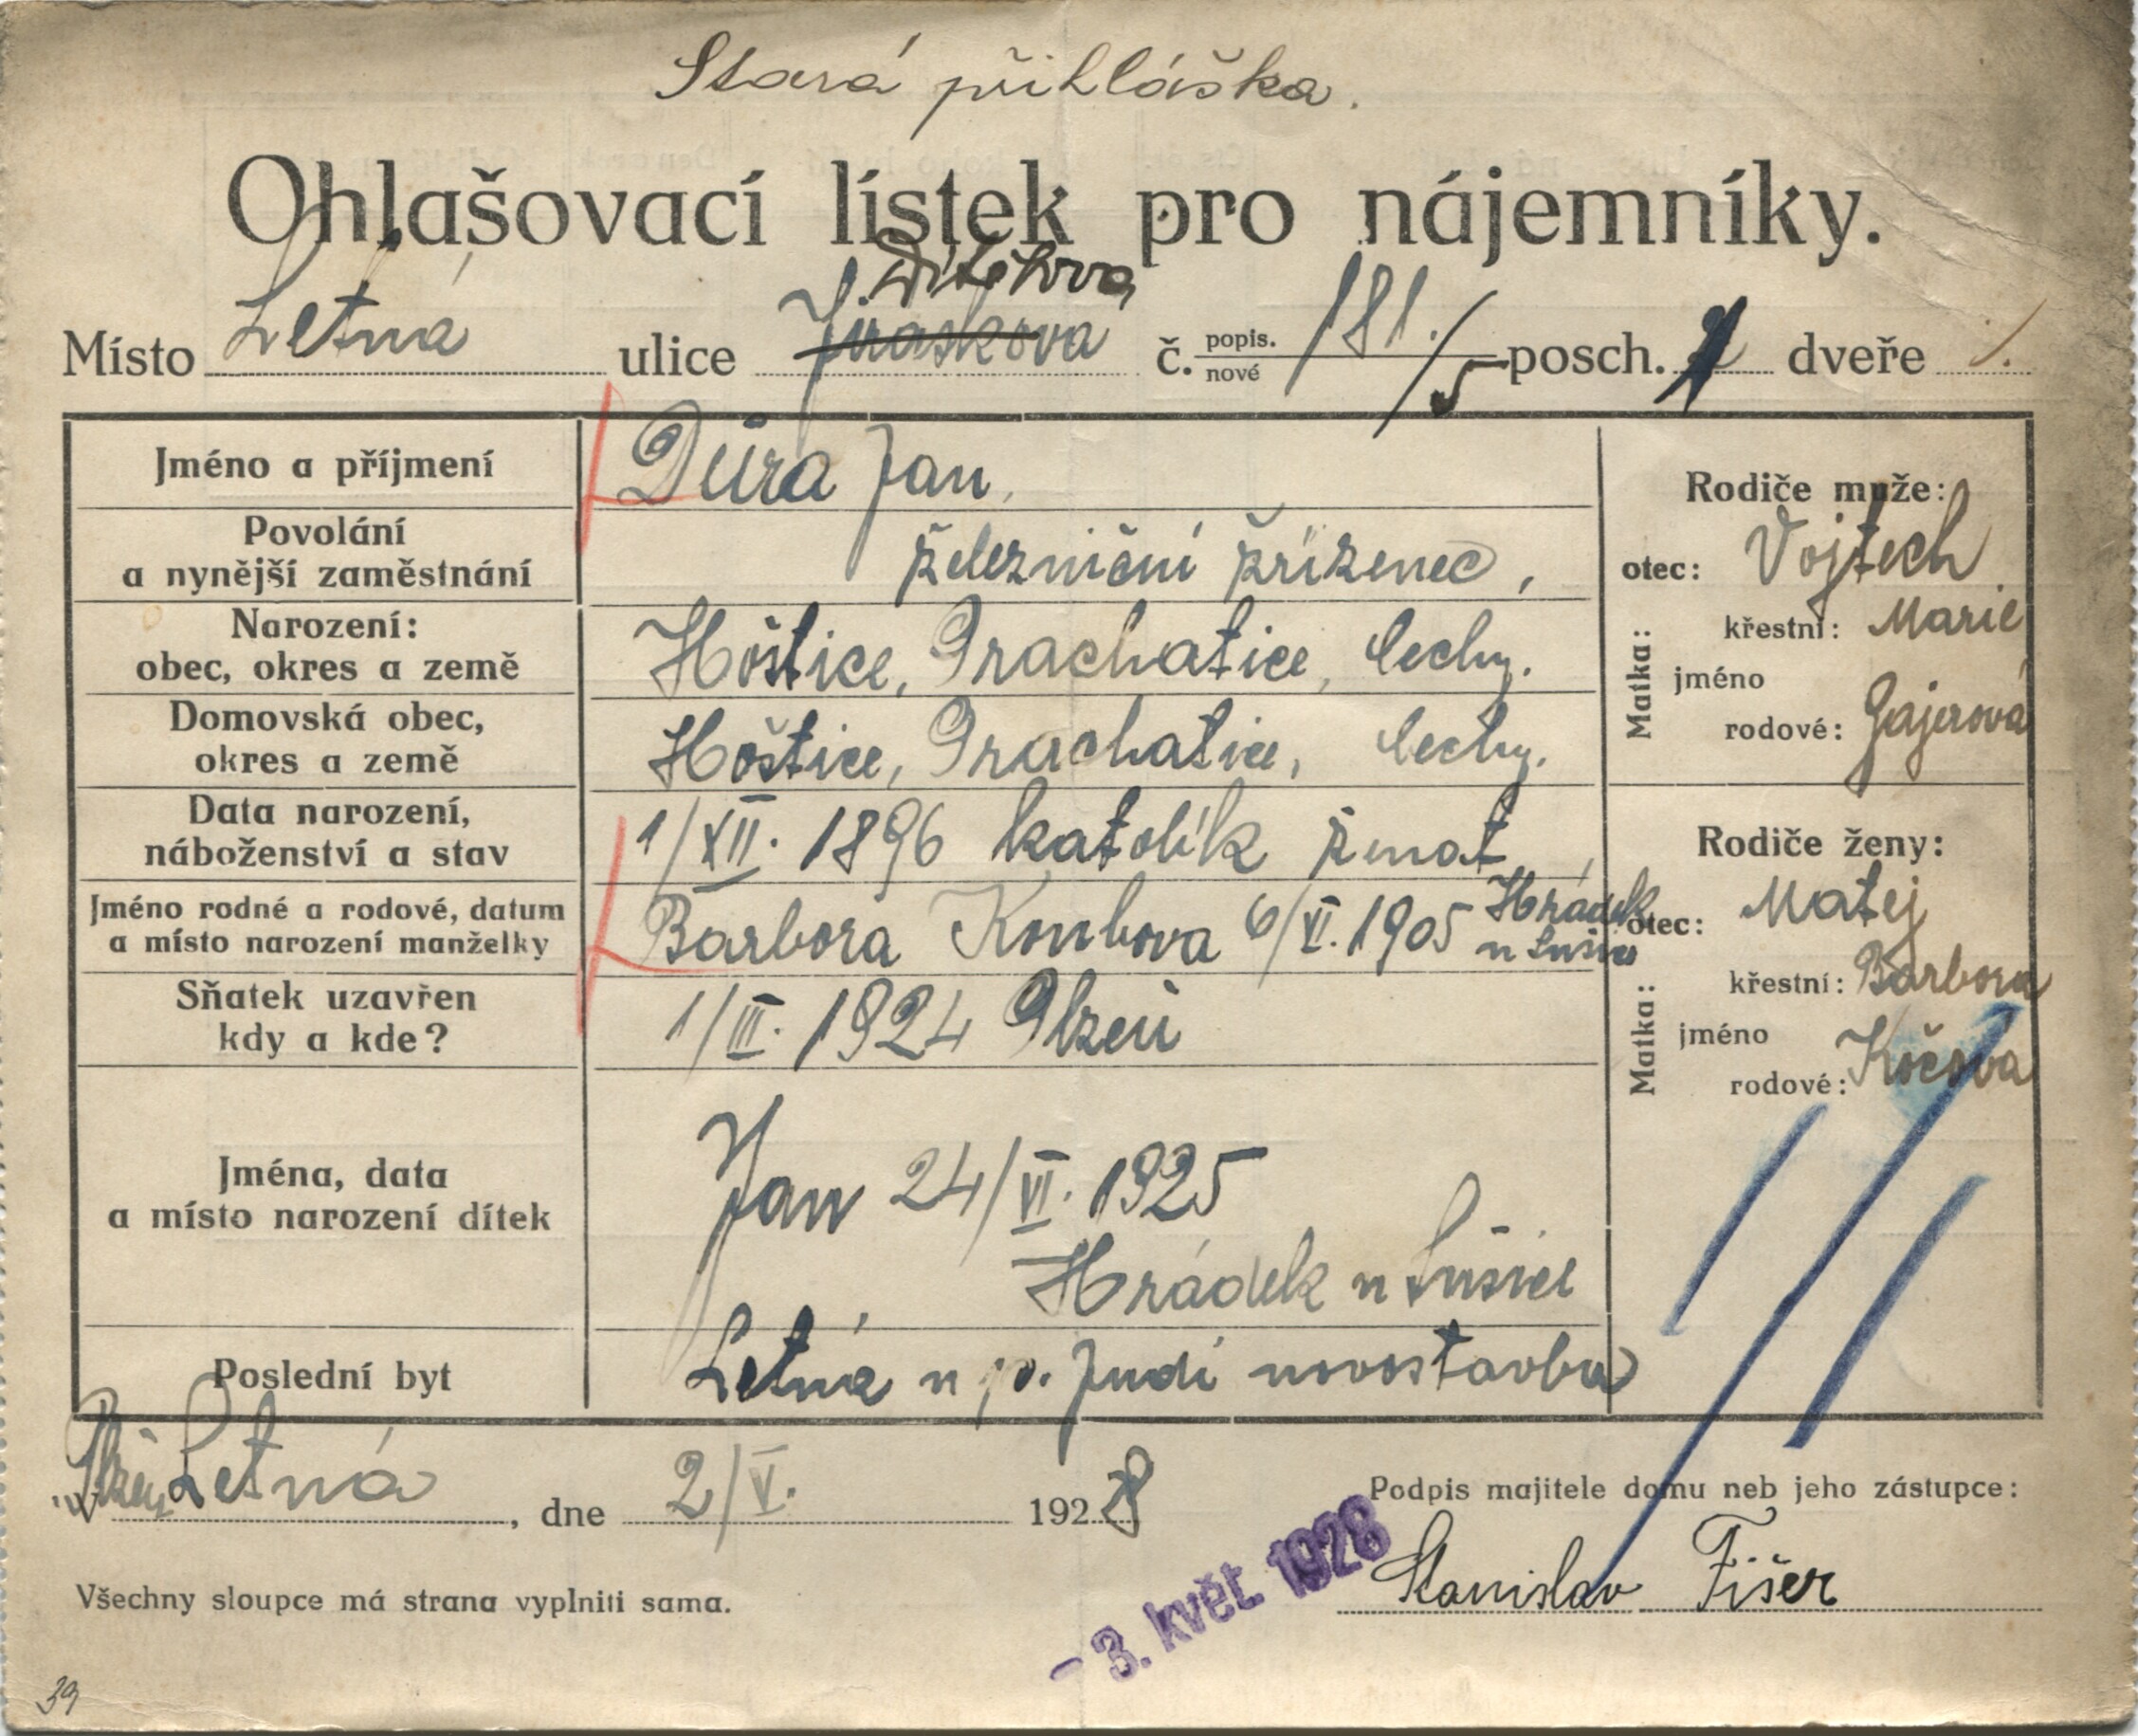 Stará přihláška.
Ohlašovací lístek pro nájemníky.
Místo Letná ulice Jiráskova č. popis. nové 181./5 posch. dveře 1.
Jméno a příjmení Důra Jan,
Povolání
a nynější zaměstnání železniční zřízenec,
Narození:
obec, okres a země Hoštice, Prachatice, Čechy.
Domovská obec,
okres a země Hoštice, Prachatice, Čechy.
Data narození,
náboženství a stav 1/XII. 1896 katolík ženat
Jméno rodné a rodové, datum
a místo narození manželky Barbora 6/VI. 1905 Hrádek u Sušice
Sňatek uzavřen
kdy a kde? 1/III. 1924 Plzeň
Jména, data
a místo narození dítek Jan 24/VI. 1925
Hrádek u Sušice
Poslední byt Letná u p. novostavba
Rodiče muže:
otec: Vojtech
Matka: křestní: Marie
jméno
rodové: Gajerová
Rodiče ženy:
otec: Matej
Matka: křestní: Barbora
jméno
rodové: Kočova
Plzeň Letná, dne 2/V. 1928
Podpis majitele domu neb jeho zástupce:
Stanislav Fišer
- 3. květ. 1928
Všechny sloupce má strana vyplniti sama.
39